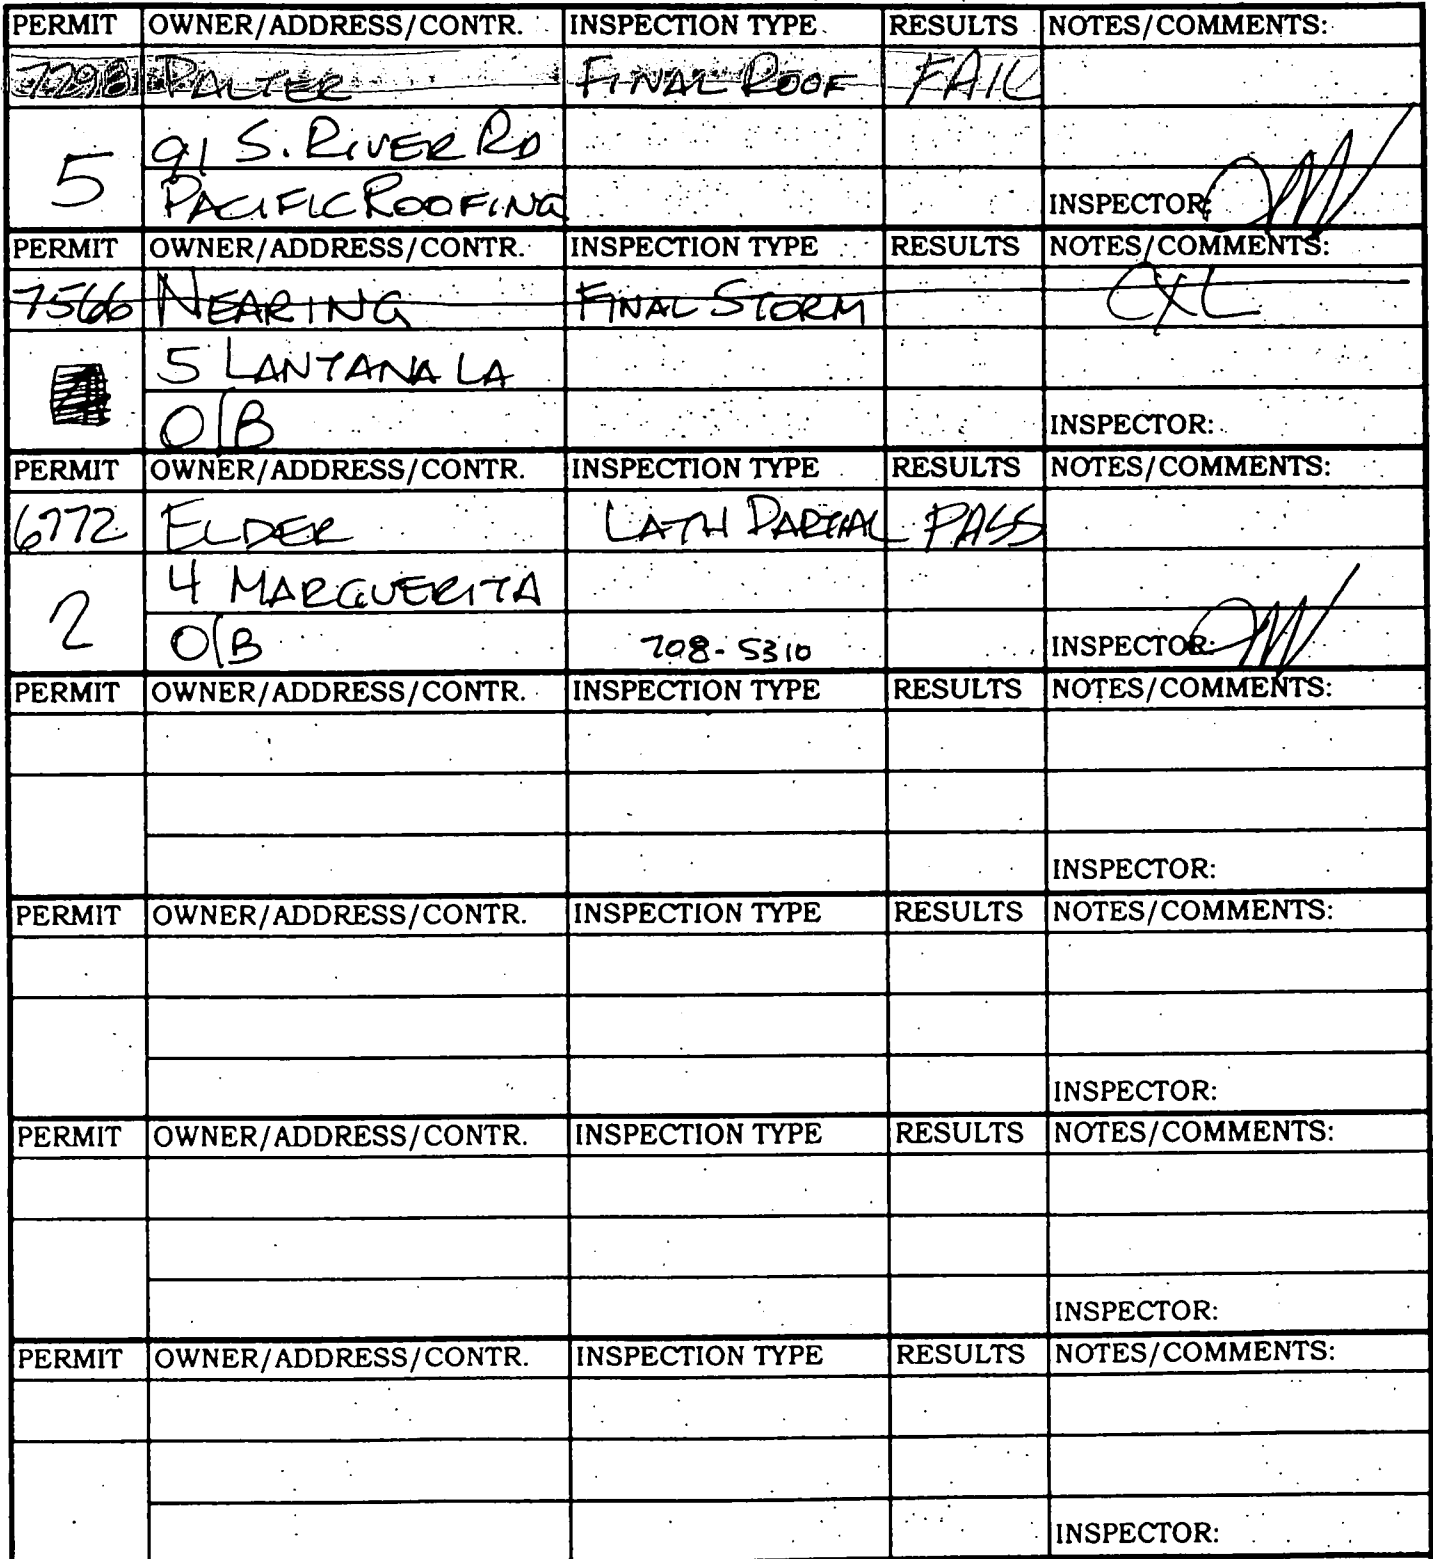 PERMIT OWNER/ADDRESS/CONTR. INSPECTION TYPE RESULTS NOTES/COMMENTS:
7298 PALTER FINAL ROOF FAIL
5 91 S. RIVER RD
PACIFIC ROOFING INSPECTOR:
PERMIT OWNER/ADDRESS/CONTR. INSPECTION TYPE RESULTS NOTES/COMMENTS:
7566 NEARING FINAL STORM CXL
5 LANTANA LA
O/B INSPECTOR:
PERMIT OWNER/ADDRESS/CONTR. INSPECTION TYPE RESULTS NOTES/COMMENTS:
6772 ELDER LATH PARTIAL PASS
2 4 MARGUERITA
O/B 708-5310 INSPECTOR:
PERMIT OWNER/ADDRESS/CONTR. INSPECTION TYPE RESULTS NOTES/COMMENTS:
INSPECTOR:
PERMIT OWNER/ADDRESS/CONTR. INSPECTION TYPE RESULTS NOTES/COMMENTS:
INSPECTOR:
PERMIT OWNER/ADDRESS/CONTR. INSPECTION TYPE RESULTS NOTES/COMMENTS:
INSPECTOR:
PERMIT OWNER/ADDRESS/CONTR. INSPECTION TYPE RESULTS NOTES/COMMENTS:
INSPECTOR: